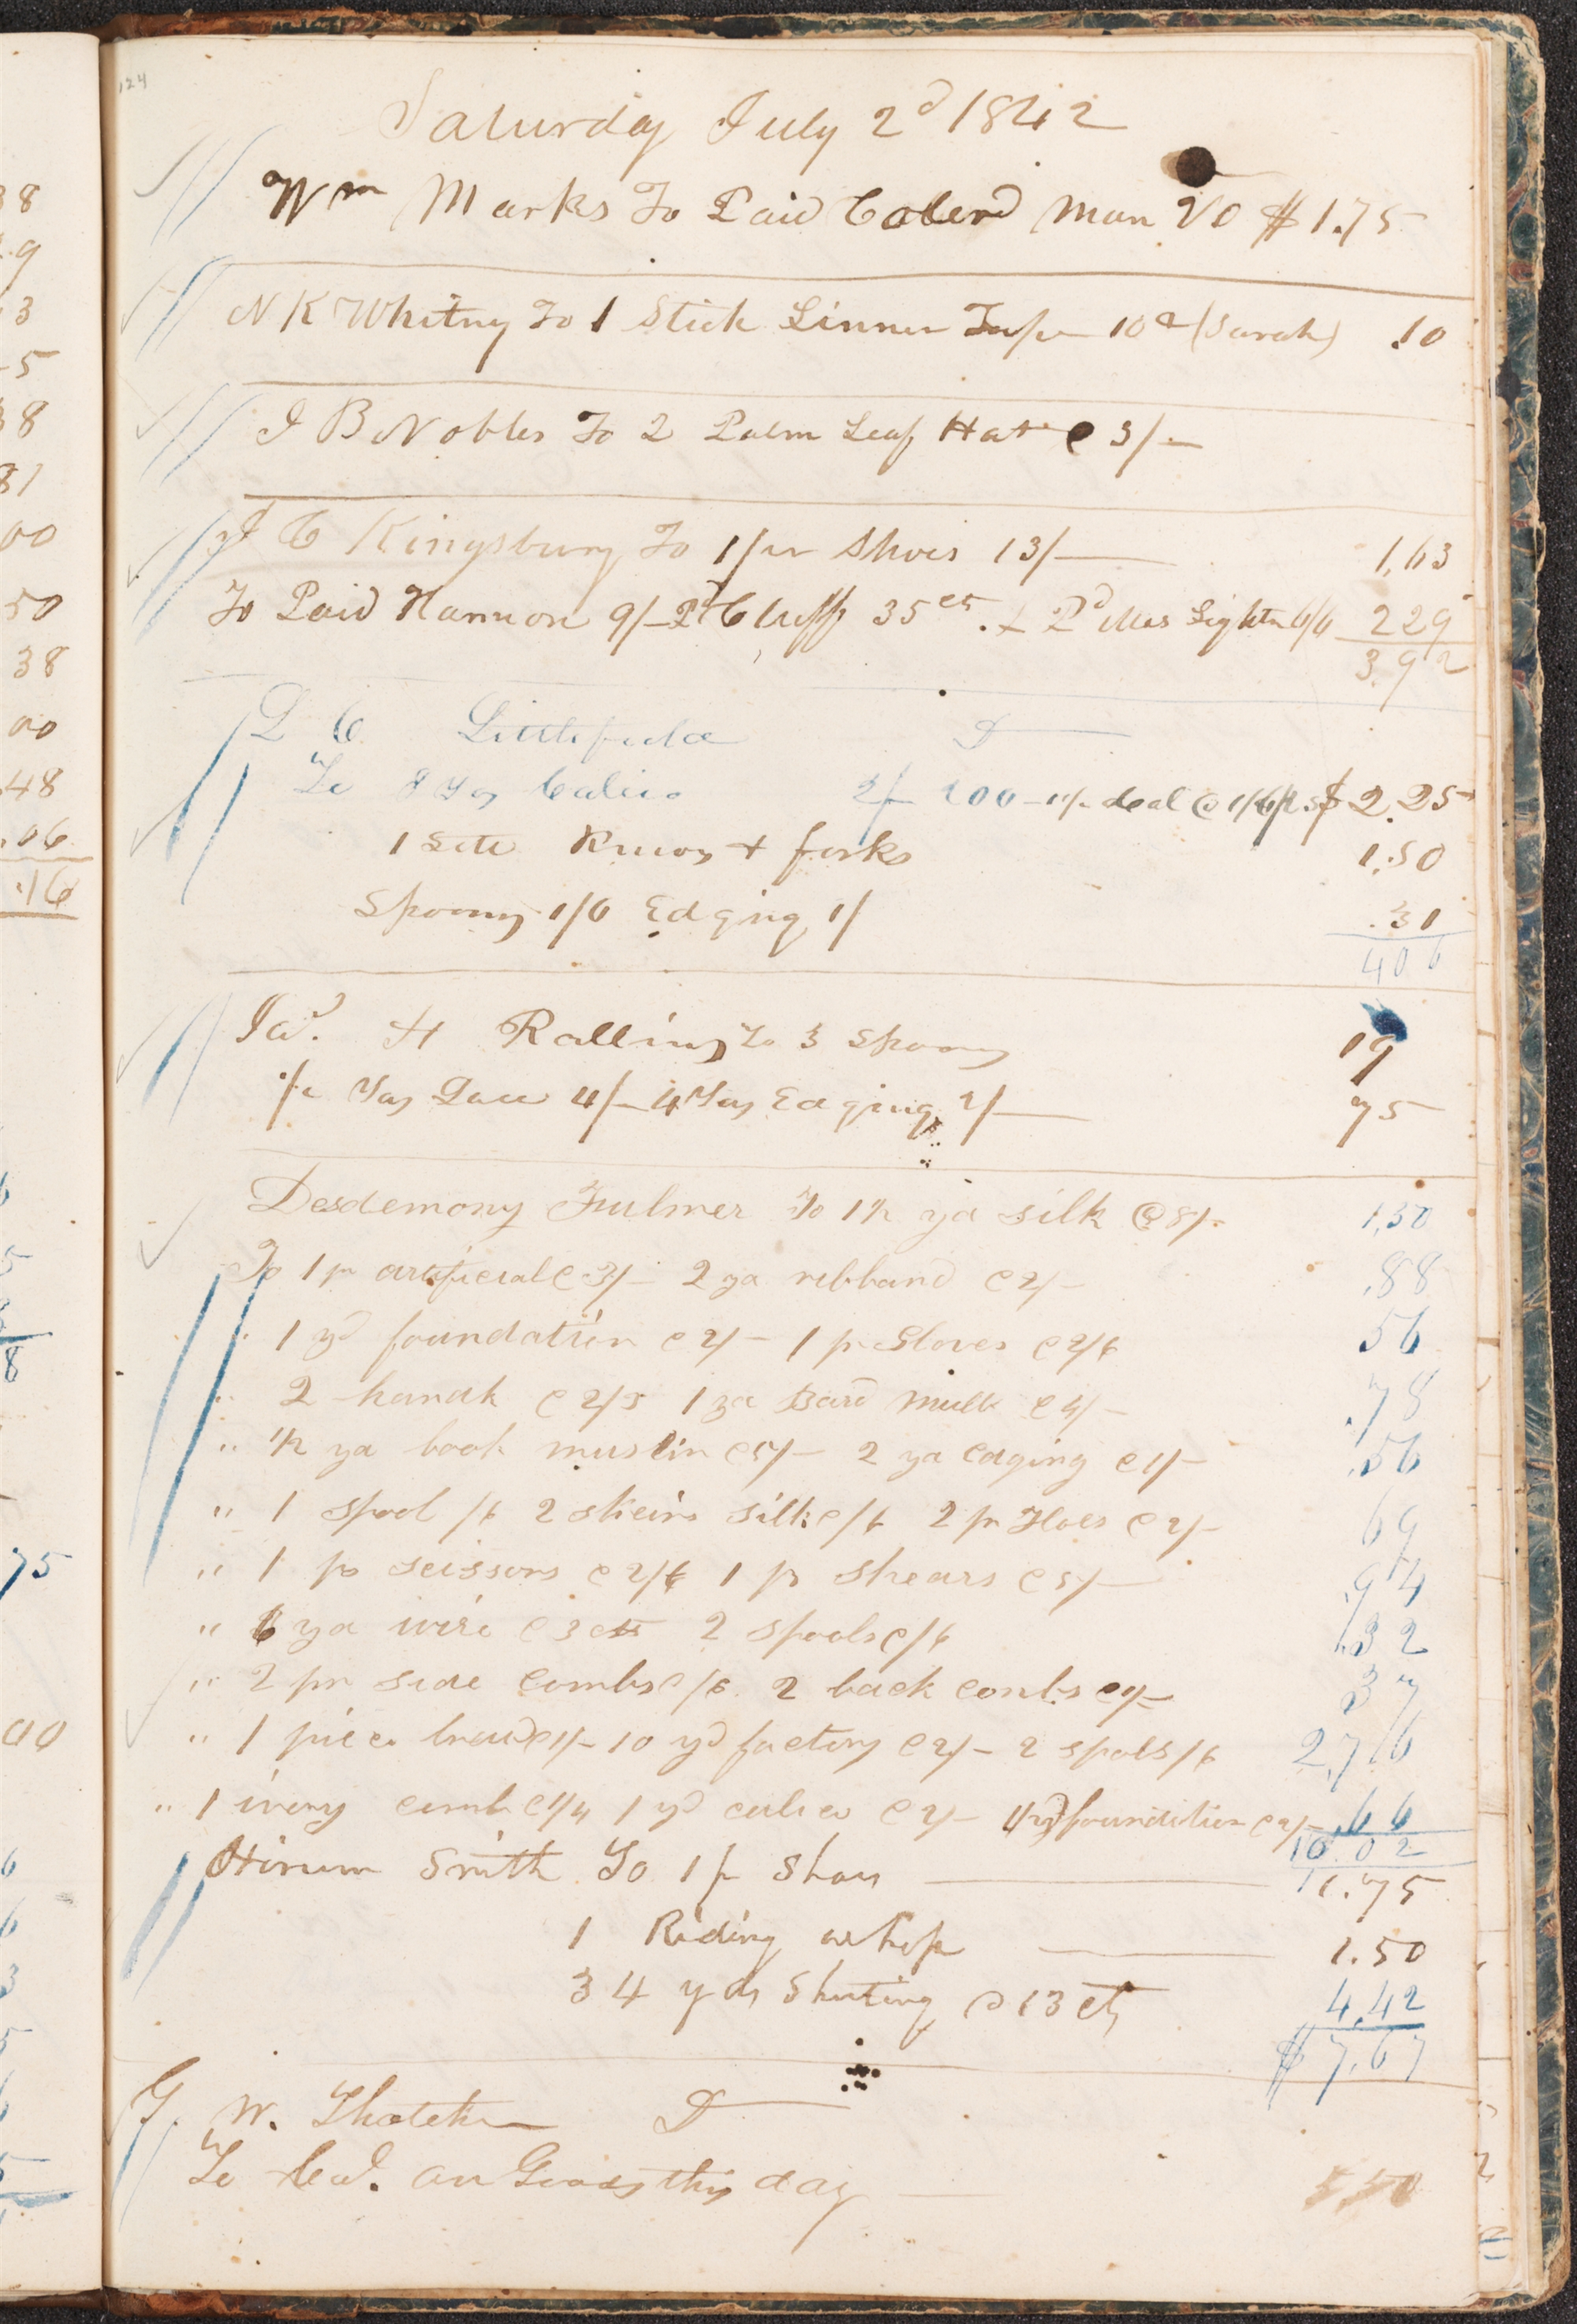 124
Saturday July 2d 1842
Wm Marks To Paid Colerd Man VO $1.75
N K Whitny To 1 Stick Linnen Tape 10c (Sarah) .10
J B Nobles To 2 Palm Leaf Hat @ 3/-
J C Kingsbury To 1 pr Shoes 13/- 1,63
To Paid Hamon 9/- Pd Cluff 35cts. + Pd Mrs Lightn 229
3.92
L C Littlefield D
To 8 Yds Calico 2/- 200 $2.25
1 Sett Knives + forks 1.50
Spoons 1/6 Edging 1/ .31
406
H Rallins To 3 Spoons 19
Yds Lace 4/- 4 Yds Edging 2/- 75
Desdemony Fulmer To 1 1/2 yd silk @ 8/- 1,50
To 1 pr artificial @ 3/- 2 yd ribband @ 2/- .88
" 1 yd foundation @ 2/- 1 pr Gloves @ 2/6 56
" 2 handk @ 2/3 1 yd Bard mull @ 4/- .78
" 1/2 yd book muslin @ 5/- 2 yd edging @ 1/- .56
" 1 spool /6 2 skeins silk @ /6 2 pr Hoes @ 2/- 69
" 1 pr scissors @ 2/6 1 pr shears @ 5/- .94
" 6 yd wire @ 3 cts 2 spools @ /6 .32
" 2 pr side combs @ /6 2 back combs @ 1/- 37
" 1 piece braid @ 1/- 10 yd factory @ 2/- 2 spools /6 2,76
" 1 ivory comb @ 1/4 1 yd calico @ 2/- 1 yd foundation @ 2/- ,66
10.02
Hirum Smith To 1 pr Shoes 1.75
1 Riding whip 1.50
34 yds Sheeting @ 13 cts 4.42
$7.67
G. W. Thatcher D
To Bal. on Goods this day 5.50